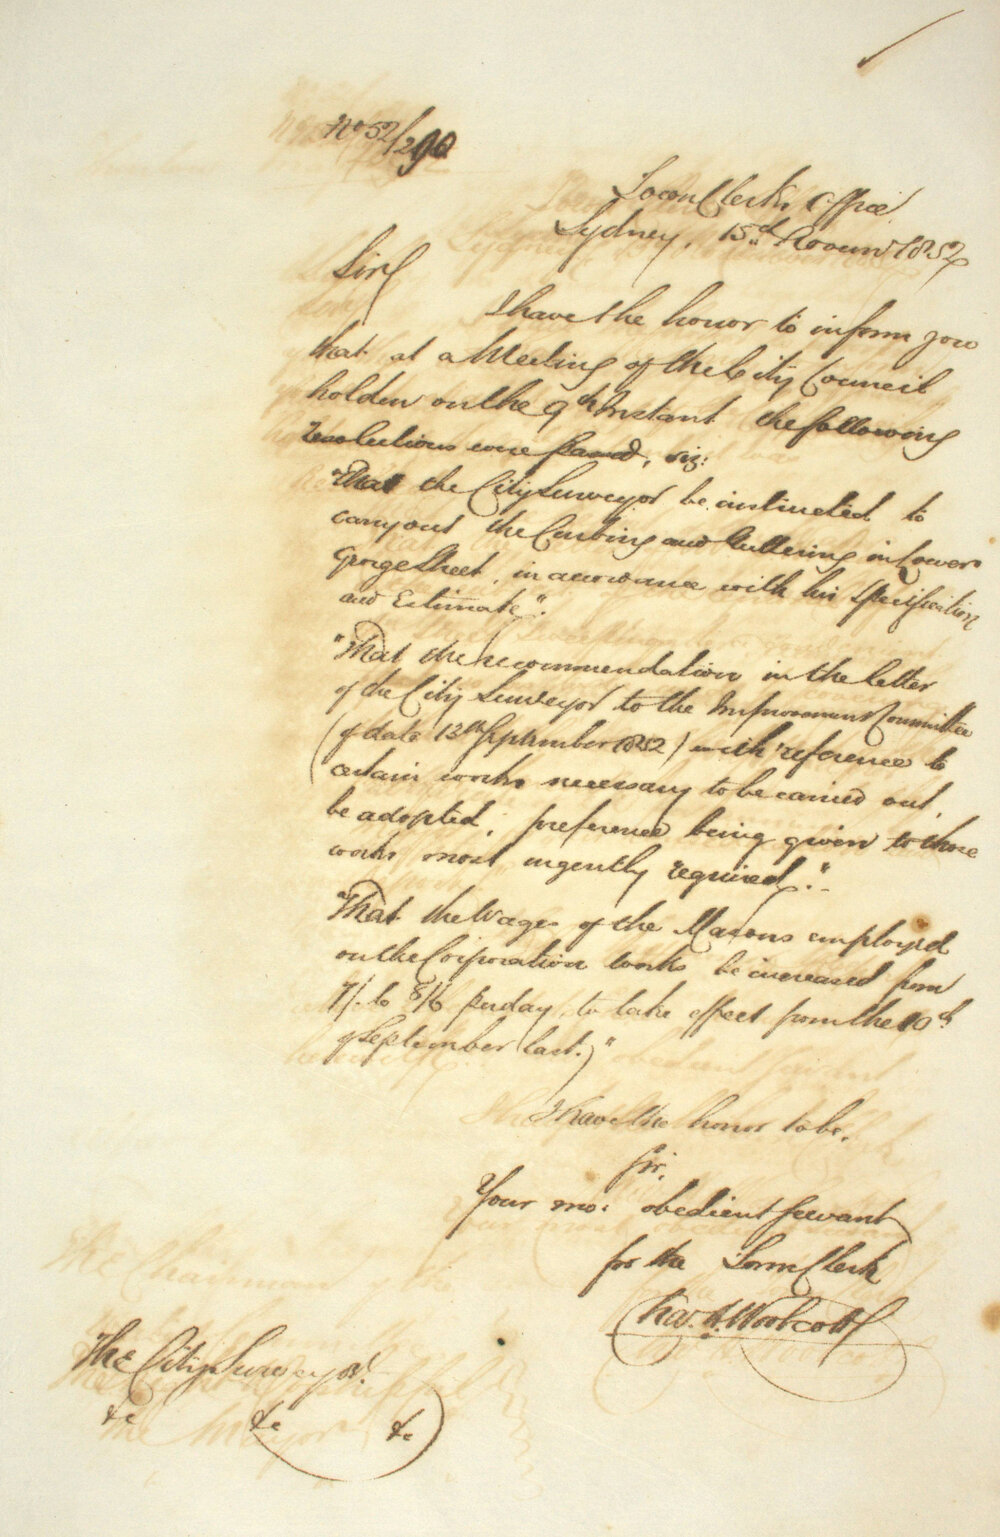 No 52/290
Town Clerk's Office
Sydney, 15th Novemr 1852
Sir
I have the honor to inform you
that at a Meeting of the City Council
holden on the 9th Instant the following
resolutions were passed, viz:
"That the City Surveyor be instructed to
carry out the Curbing and Guttering in Lower
George Street, in accordance with his Specification
and Estimate".
"That the recommendation in the letter
of the City Surveyor to the Improvement Committee
(of date 13th September 1852) with reference to
certain works necessary to be carried out,
be adopted; preference being given to those
works most urgently required."
"That the Wages of the Masons employed
on the Corporation works be increased from
7/- to 8/6 per day, to take effect from the 10th
of September last."
I have the honor to be,
Sir,
Your mo: obedient Servant
for the Town Clerk
Chas. H. Woolcott
The City Surveyor.
&c &c &c